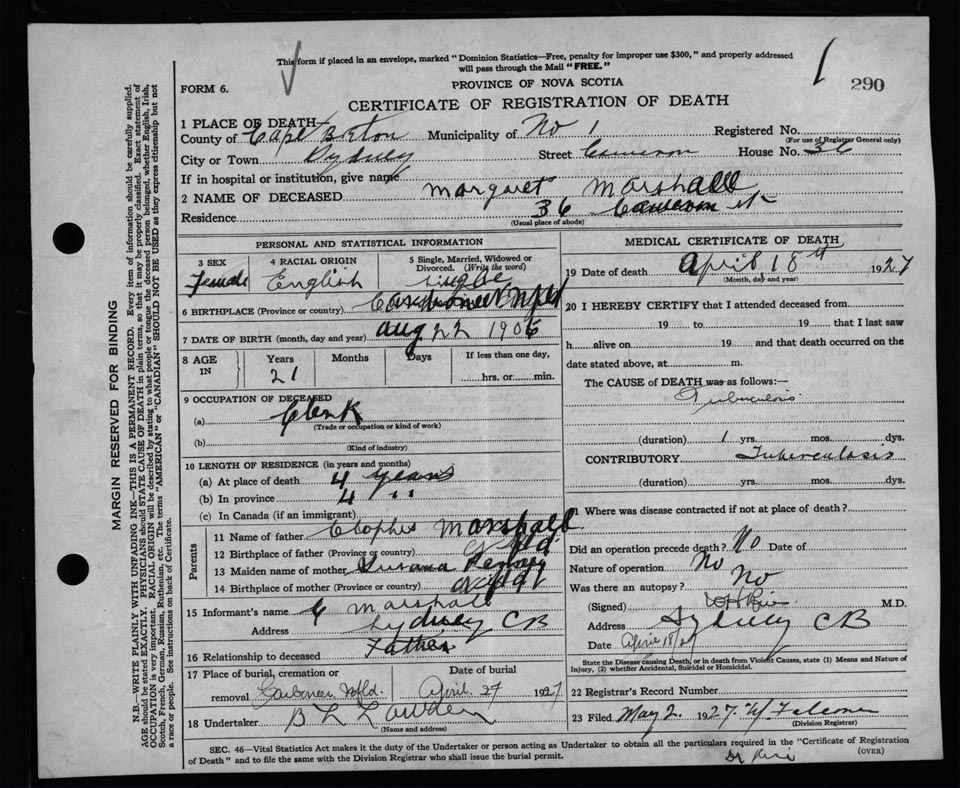 This form if placed in an envelope, marked "Dominion Statistics—Free, penalty for improper use $300," and properly addressed
will pass through the Mail "FREE."
290
FORM 6.
PROVINCE OF NOVA SCOTIA
CERTIFICATE OF REGISTRATION OF DEATH
1 PLACE OF DEATH
County of Cape Breton Municipality of No 1 Registered No.
(For use of Registrar General only)
City or Town Sydney Street Cameron House No. 36
If in hospital or institution, give name
2 NAME OF DECEASED Margaret Marshall
Residence 36 Cameron St
(Usual place of abode)
PERSONAL AND STATISTICAL INFORMATION
3 SEX Female
4 RACIAL ORIGIN English
5 Single, Married, Widowed or Divorced. (Write the word) single
6 BIRTHPLACE (Province or country)
7 DATE OF BIRTH (month, day and year) Aug 22 1906
8 AGE IN Years 21 Months Days If less than one day, hrs. or min.
9 OCCUPATION OF DECEASED
(a) Clerk
(Trade or occupation or kind of work)
(b)
(Kind of industry)
10 LENGTH OF RESIDENCE (in years and months)
(a) At place of death 4 years
(b) In province 4 "
(c) In Canada (if an immigrant)
Parents
11 Name of father Marshall
12 Birthplace of father (Province or country) Nfld
13 Maiden name of mother Susanna
14 Birthplace of mother (Province or country) Nfld
15 Informant's name C Marshall
Address Sydney CB
16 Relationship to deceased Father
17 Place of burial, cremation or Date of burial
removal Nfld. April 27 1927
18 Undertaker B L
(Name and address)
MEDICAL CERTIFICATE OF DEATH
19 Date of death April 18th 1927
(Month, day and year)
20 I HEREBY CERTIFY that I attended deceased from
19 to 19 that I last saw
h alive on 19 and that death occurred on the
date stated above, at m.
The CAUSE of DEATH was as follows:—
Tuberculosis
(duration) 1 yrs. mos. dys.
CONTRIBUTORY Tuberculosis
(duration) yrs. mos. dys.
21 Where was disease contracted if not at place of death?
Did an operation precede death? No Date of
Nature of operation No
Was there an autopsy? No
(Signed) M.D.
Address Sydney CB
Date April 18/27
State the Disease causing Death, or in death from Violent Causes, state (1) Means and Nature of
Injury, (2) whether Accidental, Suicidal or Homicidal.
22 Registrar's Record Number
23 Filed May 2. 1927. Falconer
(Division Registrar)
SEC. 46—Vital Statistics Act makes it the duty of the Undertaker or person acting as Undertaker to obtain all the particulars required in the "Certificate of Registration
of Death" and to file the same with the Division Registrar who shall issue the burial permit. (OVER)
MARGIN RESERVED FOR BINDING
N.B.—WRITE PLAINLY WITH UNFADING INK—THIS IS A PERMANENT RECORD. Every item of information should be carefully supplied.
AGE should be stated EXACTLY. PHYSICIANS should STATE CAUSE OF DEATH in plain terms, so that it may be properly classified. Exact statement of
OCCUPATION is very important. RACIAL ORIGIN will be described by stating to what people or tongue the deceased person belonged, whether English, Irish,
Scotch, French, German, Russian, Ruthenian, etc. The terms "AMERICAN" or "CANADIAN" SHOULD NOT BE USED as they express citizenship but not
a race or people. See instructions on back of Certificate.